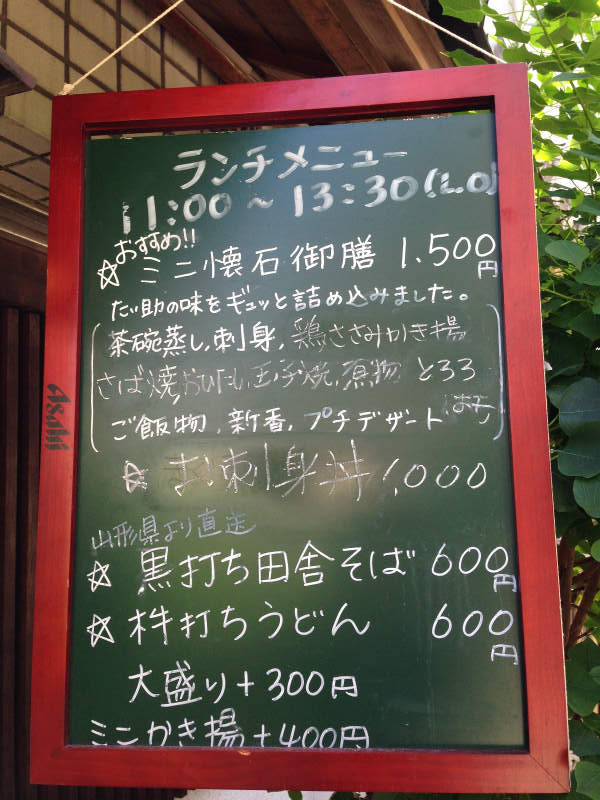 ランチメニュー
11:00～13:30(L.O)
おすすめ!!
☆ミニ懐石御膳 1.500円
たい助の味をギュッと詰め込みました。
茶碗蒸し,刺身,鶏ささみかき揚
さば焼,おひたし,玉子焼,煮物 とろろ
ご飯物,新香,プチデザート
☆お刺身丼 1,000
山形県より直送
☆黒打ち田舎そば 600円
☆杵打ちうどん 600円
大盛り+300円
ミニかき揚+400円
Asahi